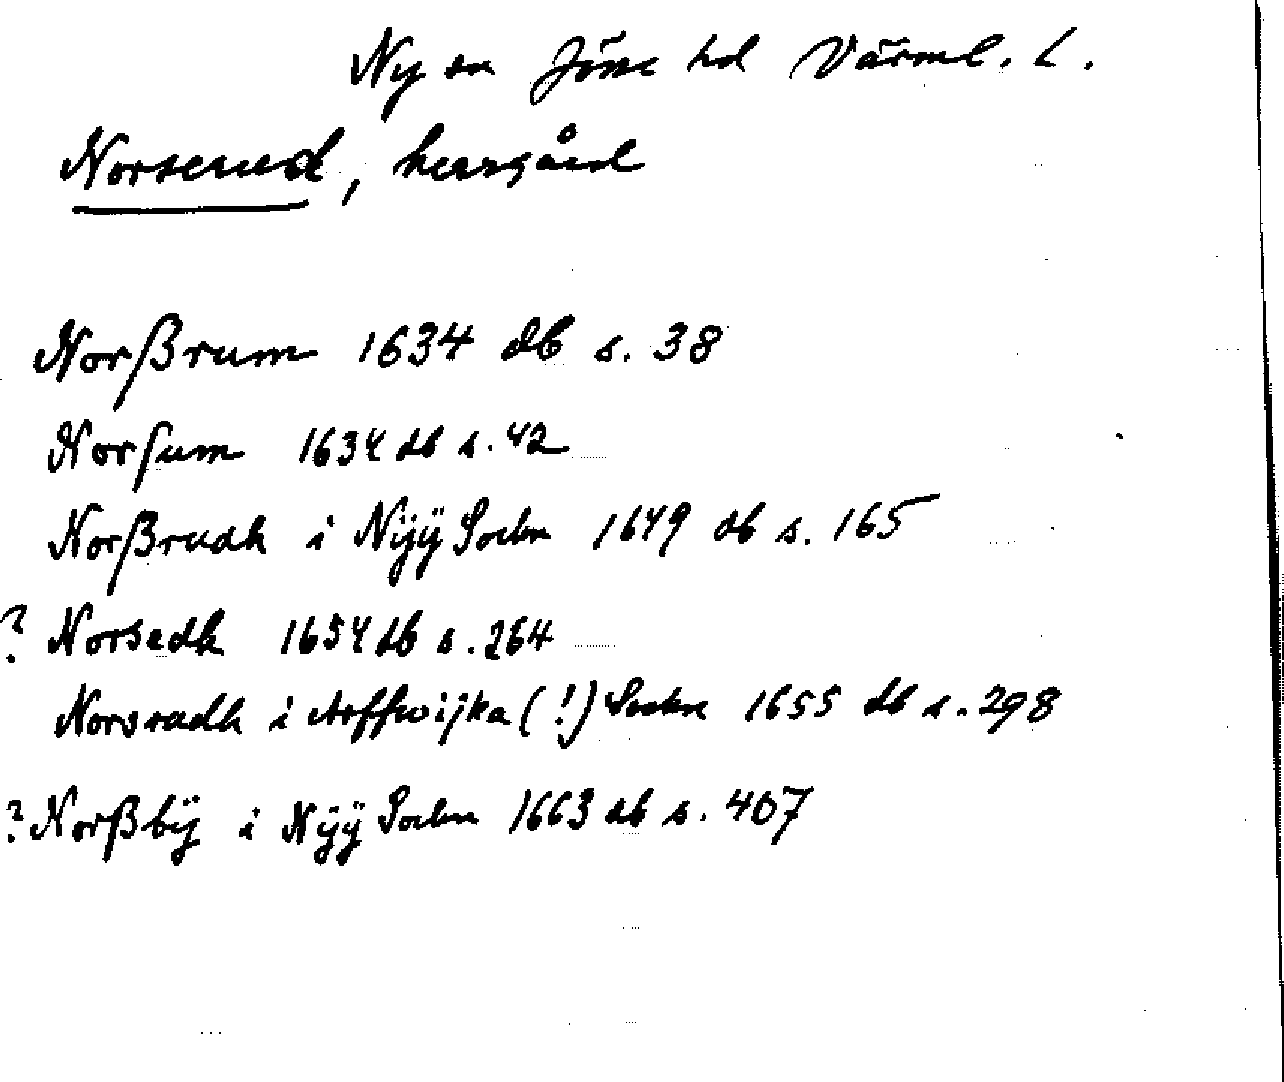 Ny sn Jösse hd Värml. l.
Norserud, herrgård
Norßrum 1634 db s. 38
Norsum 1634 db s. 42
Norßrudh i Nÿÿ Sochn 1649 db s. 165
? Norsedh 1654 db s. 264
Norsradh i Arffwijka (!) Sockn 1655 db s. 298
? Norßbÿ i Nÿÿ Sochn 1663 db s. 407